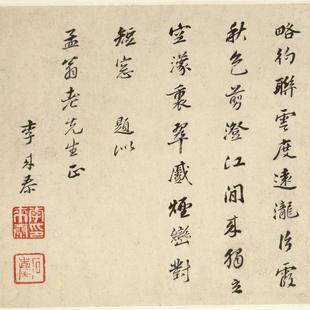 略彴聯雲度遠瀧片霞
秋色剪澄江閒來獨立
空濛裏翠蹙煙巒對
短窓 題似
孟翁老先生正
李來泰